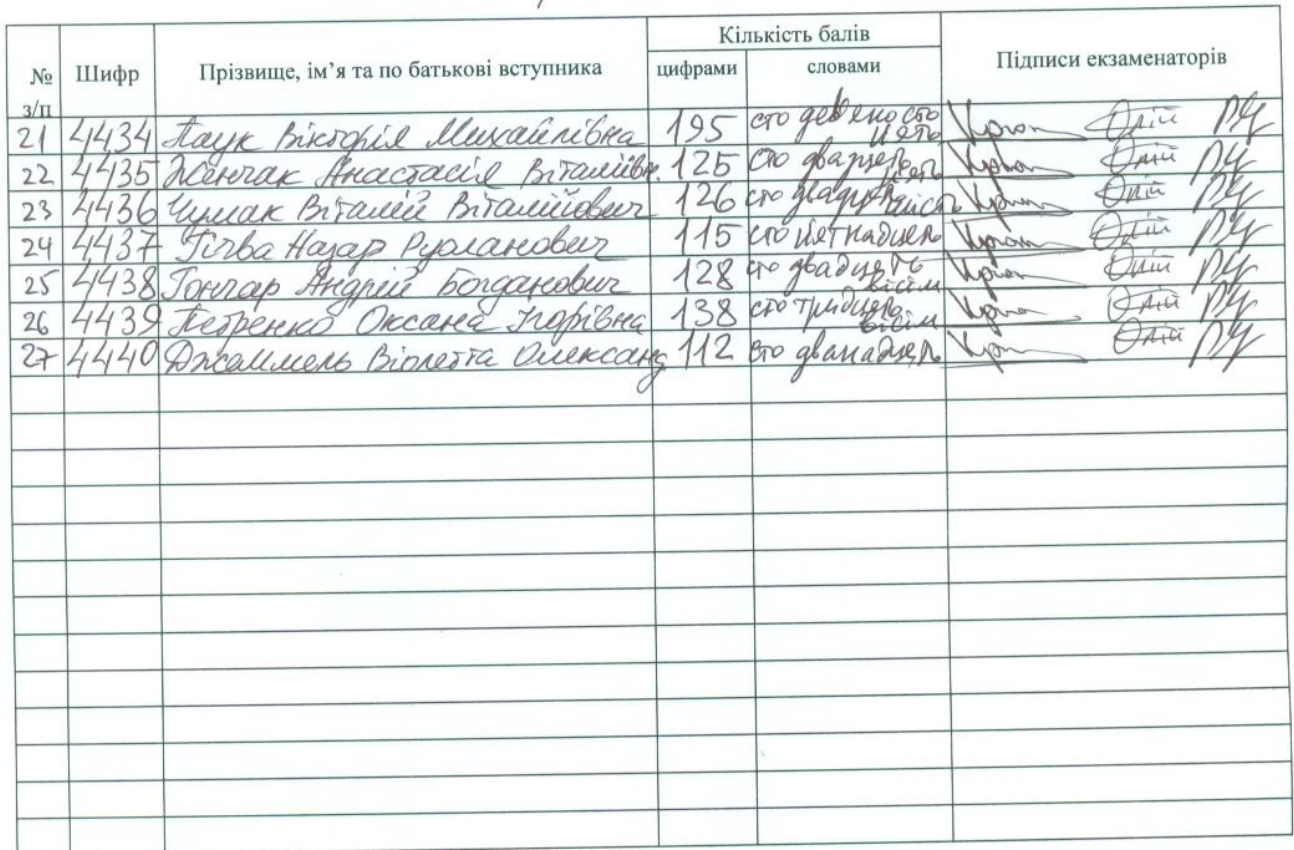 Кількість балів
№ з/п Шифр Прізвище, ім’я та по батькові вступника цифрами словами Підписи екзаменаторів
21 4434 Паук Вікторія Михайлівна 195 сто девяносто пять
22 4435 Анастасія Віталіївн. 125 сто двадцять пять
23 4436 Чумак Віталій Віталійович 126 сто двадцять шість
24 4437 Назар Русланович 115 сто пятнадцять
25 4438 Гончар Андрій Богданович 128 сто двадцять вісім
26 4439 Петренко Оксана Ігорівна 138 сто тридцять вісім
27 4440 Джаммель Віолетта Олександ 112 сто дванадцять